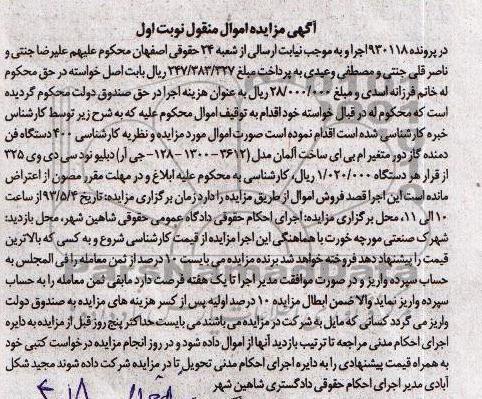 آگهی مزایده اموال منقول نوبت اول
در پرونده ۹۳۰۱۱۸ اجرا و به موجب نیابت ارسالی از شعبه ۲۴ حقوقی اصفهان محکوم علیهم علیرضا جنتی و
ناصر قلی جنتی و مصطفی وعیدی به پرداخت مبلغ ۲۴۷/۳۸۳/۳۲۷ ریال بابت اصل خواسته در حق محکوم
له خانم فرزانه اسدی و مبلغ ۲۸/۰۰۰/۰۰۰ ریال به عنوان هزینه اجرا در حق صندوق دولت محکوم گردیده
است که محکوم له در قبال خواسته خود اقدام به توقیف اموال محکوم علیه که به شرح زیر توسط کارشناس
خبره کارشناسی شده است اقدام نموده است صورت اموال مورد مزایده و نظریه کارشناسی ۴۰۰ دستگاه فن
دمنده گاز دور متغیر ام بی ای ساخت آلمان مدل (۳۶۱۲-۱۳۰۰-۱۲۸-جی آر) دبلیو نود سی دی وی ۳۲۵
از قرار هر دستگاه ۱/۰۲۰/۰۰۰ ریال، کارشناسی به محکوم علیه ابلاغ و در مهلت مقرر مصون از اعتراض
مانده است این اجرا قصد فروش اموال از طریق مزایده را دارد زمان برگزاری مزایده: تاریخ ۹۳/۵/۴ از ساعت
۱۰ الی ۱۱، محل برگزاری مزایده: اجرای احکام حقوقی دادگاه عمومی حقوقی شاهین شهر، محل بازدید:
شهرک صنعتی مورچه خورت با هماهنگی این اجرا مزایده از قیمت کارشناسی شروع و به کسی که بالاترین
قیمت را پیشنهاد دهد فروخته خواهد شد برنده مزایده می بایست ۱۰ درصد از ثمن معامله را فی المجلس به
حساب سپرده واریز و در صورت موافقت مدیر اجرا تا یک هفته فرصت دارد مابقی ثمن معامله را به حساب
سپرده واریز نماید والا ضمن ابطال مزایده ۱۰ درصد اولیه پس از کسر هزینه های مزایده به صندوق دولت
واریز می گردد کسانی که مایل به شرکت در مزایده می باشند می بایست حداکثر پنج روز قبل از مزایده به دایره
اجرای احکام مدنی مراجعه تا ترتیب بازدید آنها از اموال داده شود و در روز انجام مزایده درخواست کتبی خود
به همراه قیمت پیشنهادی را به دایره اجرای احکام مدنی تحویل تا در مزایده شرکت داده شوند مجید شکل
آبادی مدیر اجرای احکام حقوقی دادگستری شاهین شهر